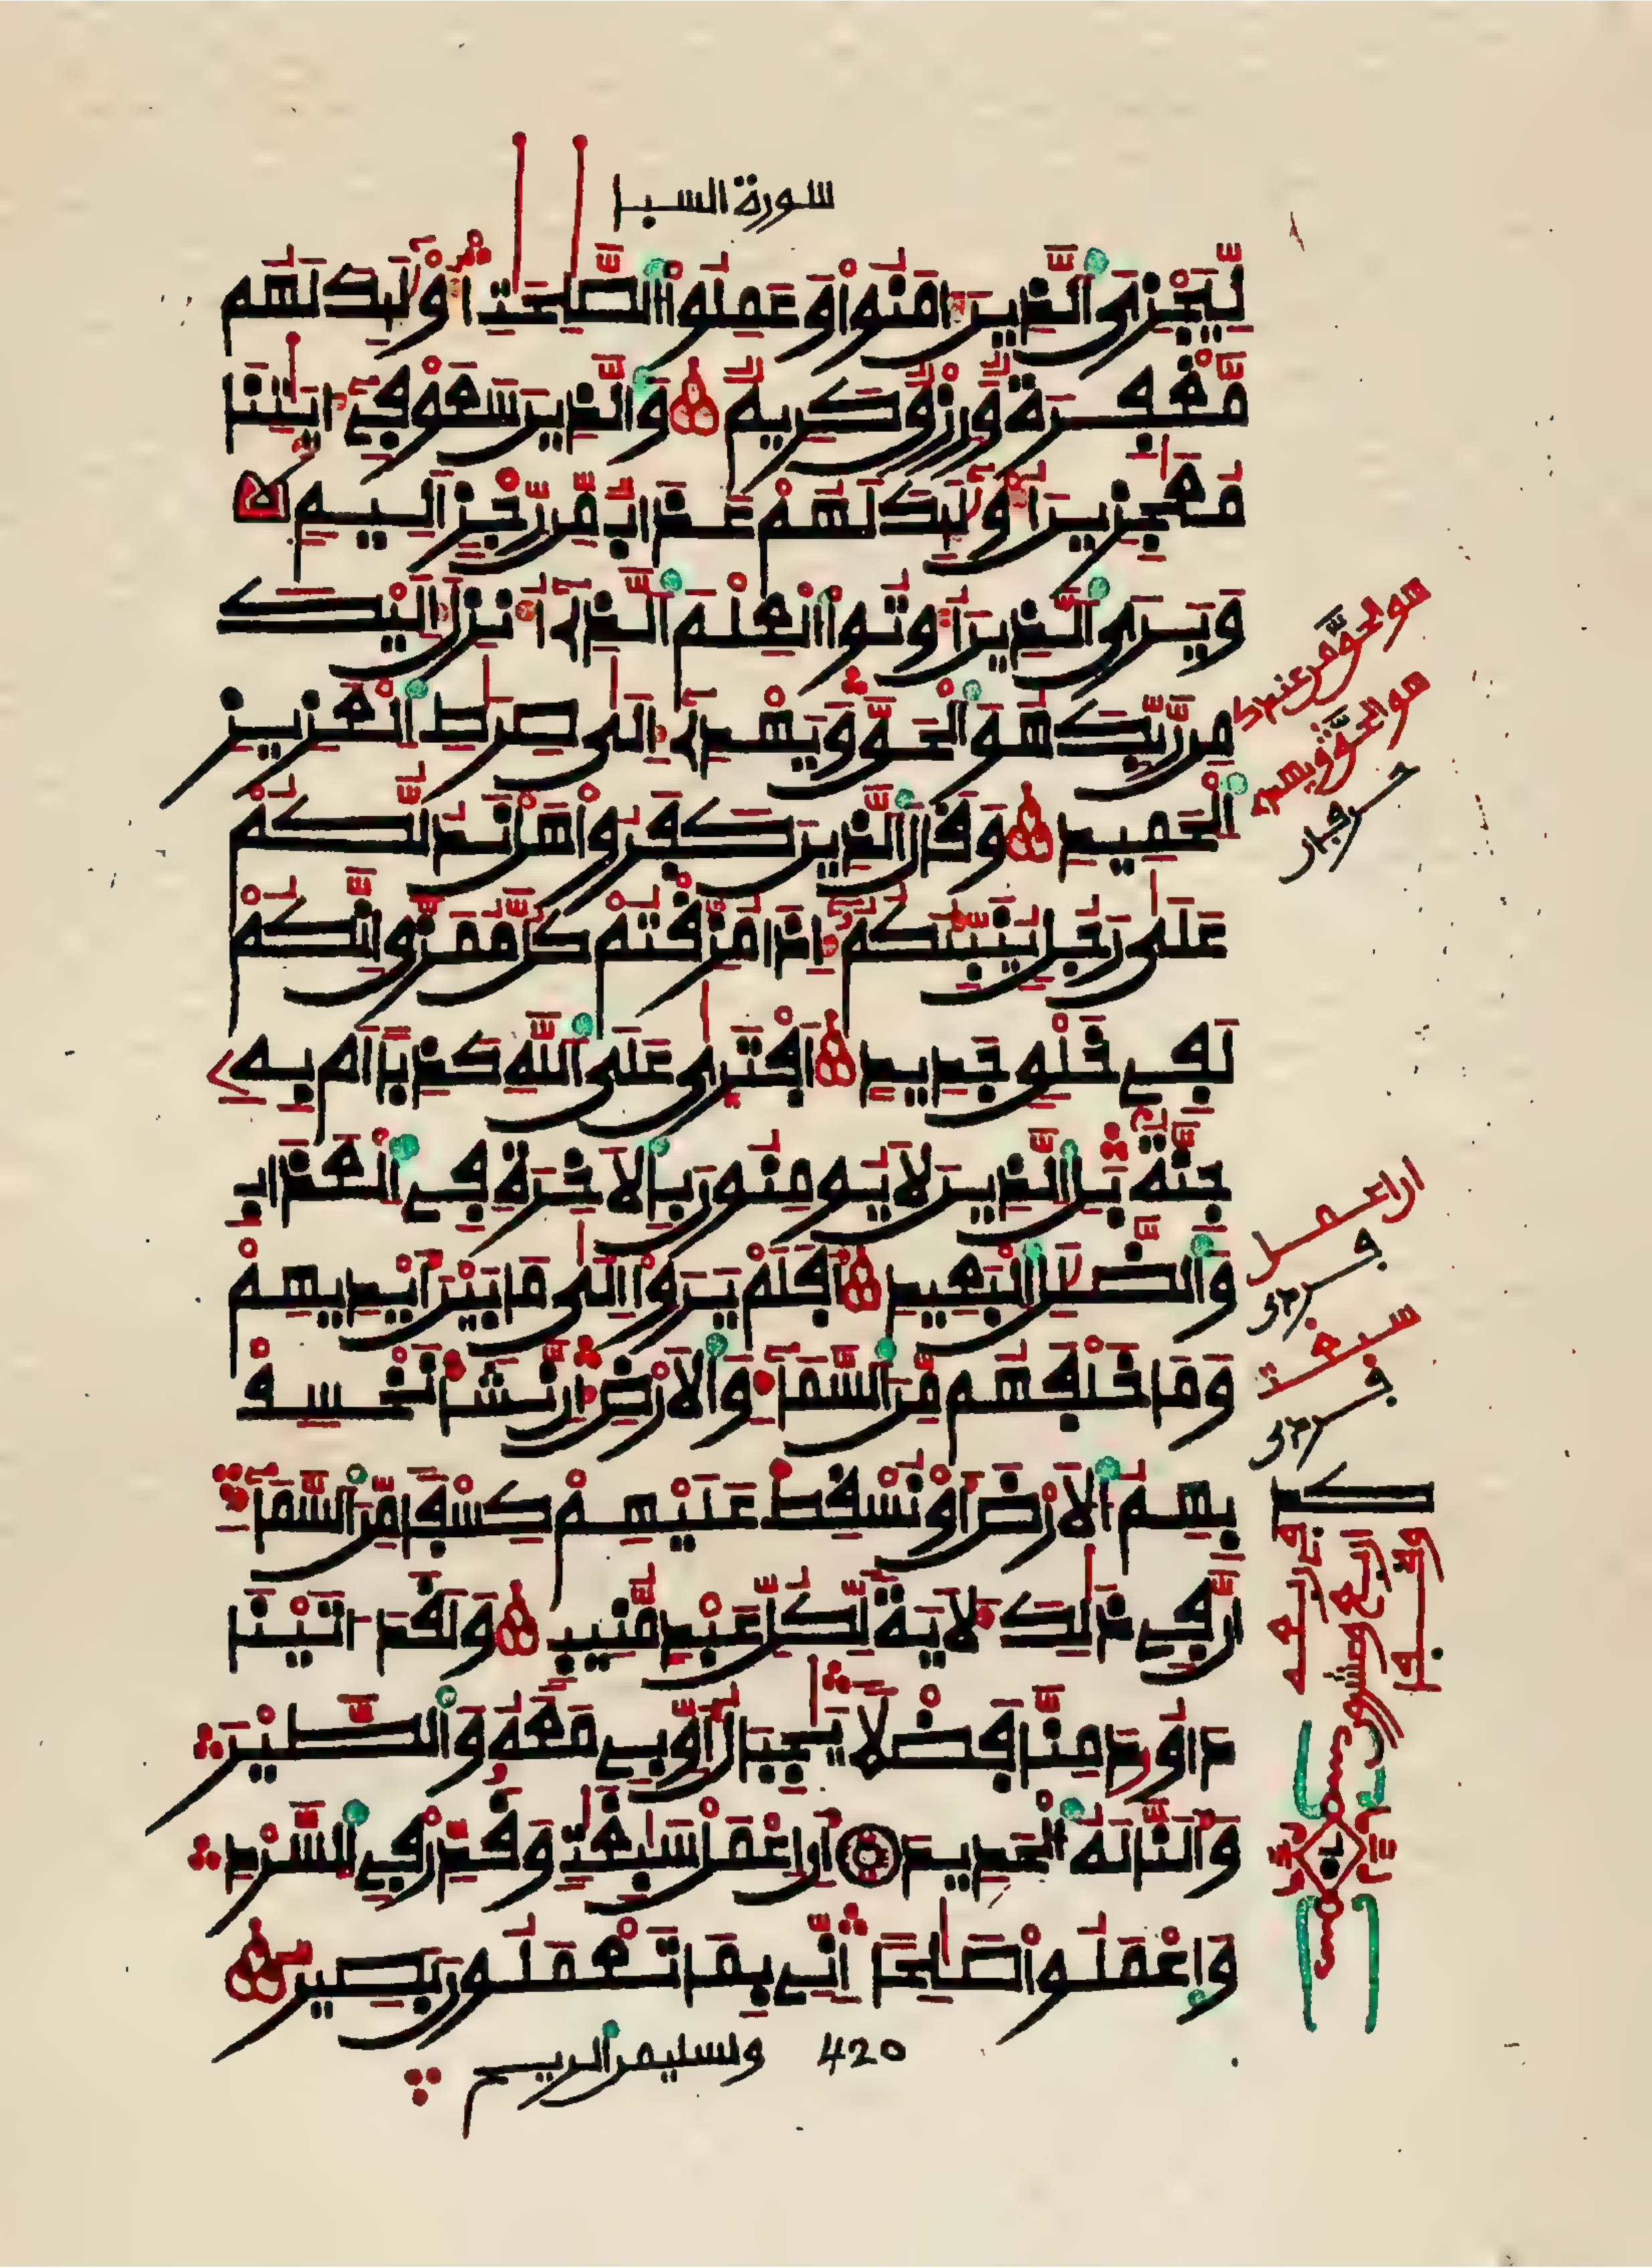 سورة السبا
لِّيَجْزِيَ الَّذِينَ ءَامَنُوا وَعَمِلُوا الصَّٰلِحَٰتِ أُوْلَٰئِكَ لَهُم
مَّغْفِرَةٌ وَرِزْقٌ كَرِيمٌ وَالَّذِينَ سَعَوْ فِي ءَايَٰتِنَا
مُعَٰجِزِينَ أُوْلَٰئِكَ لَهُمْ عَذَابٌ مِّن رِّجْزٍ أَلِيمٍ
وَيَرَى الَّذِينَ أُوتُوا الْعِلْمَ الَّذِي أُنزِلَ إِلَيْكَ
مِن رَّبِّكَ هُوَ الْحَقَّ وَيَهْدِي إِلَىٰ صِرَٰطِ الْعَزِيزِ
الْحَمِيدِ وَقَالَ الَّذِينَ كَفَرُوا هَلْ نَدُلُّكُمْ
عَلَىٰ رَجُلٍ يُنَبِّئُكُمْ إِذَا مُزِّقْتُمْ كُلَّ مُمَزَّقٍ إِنَّكُمْ
لَفِي خَلْقٍ جَدِيدٍ أَفْتَرَىٰ عَلَى اللَّهِ كَذِبًا أَم بِهِ
جِنَّةٌ بَلِ الَّذِينَ لَا يُومِنُونَ بِالْأَخِرَةِ فِي الْعَذَابِ
وَالضَّلَٰلِ الْبَعِيدِ أَفَلَمْ يَرَوْا إِلَىٰ مَا بَيْنَ أَيْدِيهِمْ
وَمَا خَلْفَهُم مِّنَ السَّمَاءِ وَالْأَرْضِ إِن نَّشَأْ نَخْسِفْ
بِهِمُ الْأَرْضَ أَوْ نُسْقِطْ عَلَيْهِمْ كِسْفًا مِّنَ السَّمَاءِ
إِنَّ فِي ذَٰلِكَ لَأَيَةً لِّكُلِّ عَبْدٍ مُّنِيبٍ وَلَقَدْ ءَاتَيْنَا
دَاوُدَ مِنَّا فَضْلًا يَٰجِبَالُ أَوِّبِي مَعَهُ وَالطَّيْرَ
وَأَلَنَّا لَهُ الْحَدِيدَ أَنِ اعْمَلْ سَٰبِغَٰتٍ وَقَدِّرْ فِي السَّرْدِ
وَاعْمَلُوا صَٰلِحًا إِنِّي بِمَا تَعْمَلُونَ بَصِيرٌ
420 ولسليمن الريح
هو الحق من عند
هو الحق ويهد
ان اعمل
سبغت